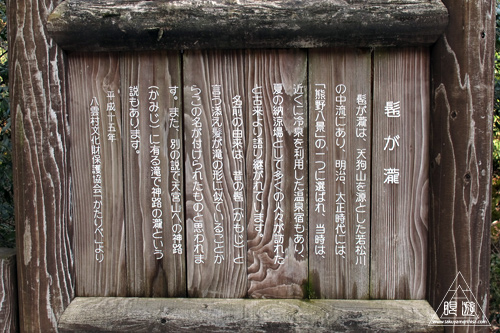 髢が瀧
髢が瀧は、天狗山を源とした若松川
の中流にあり、明治、大正時代には、
「熊野八景」の一つに選ばれ、当時は
近くに冷泉を利用した温泉宿もあり、
夏の納涼場として多くの人々が訪れた
と古来より語り継がれています。
名前の由来は、昔の髢（かもじ）と
言う添え髪が滝の形に似ていることか
らこの名が付けられたものと思われま
す。また、別の説で天宮山への神路
（かみじ）に有る滝で神路の瀧という
説もあります。
平成十五年
八雲村文化財保護協会「かたしべ」より
眼遊
www.takuyamorihisa.com